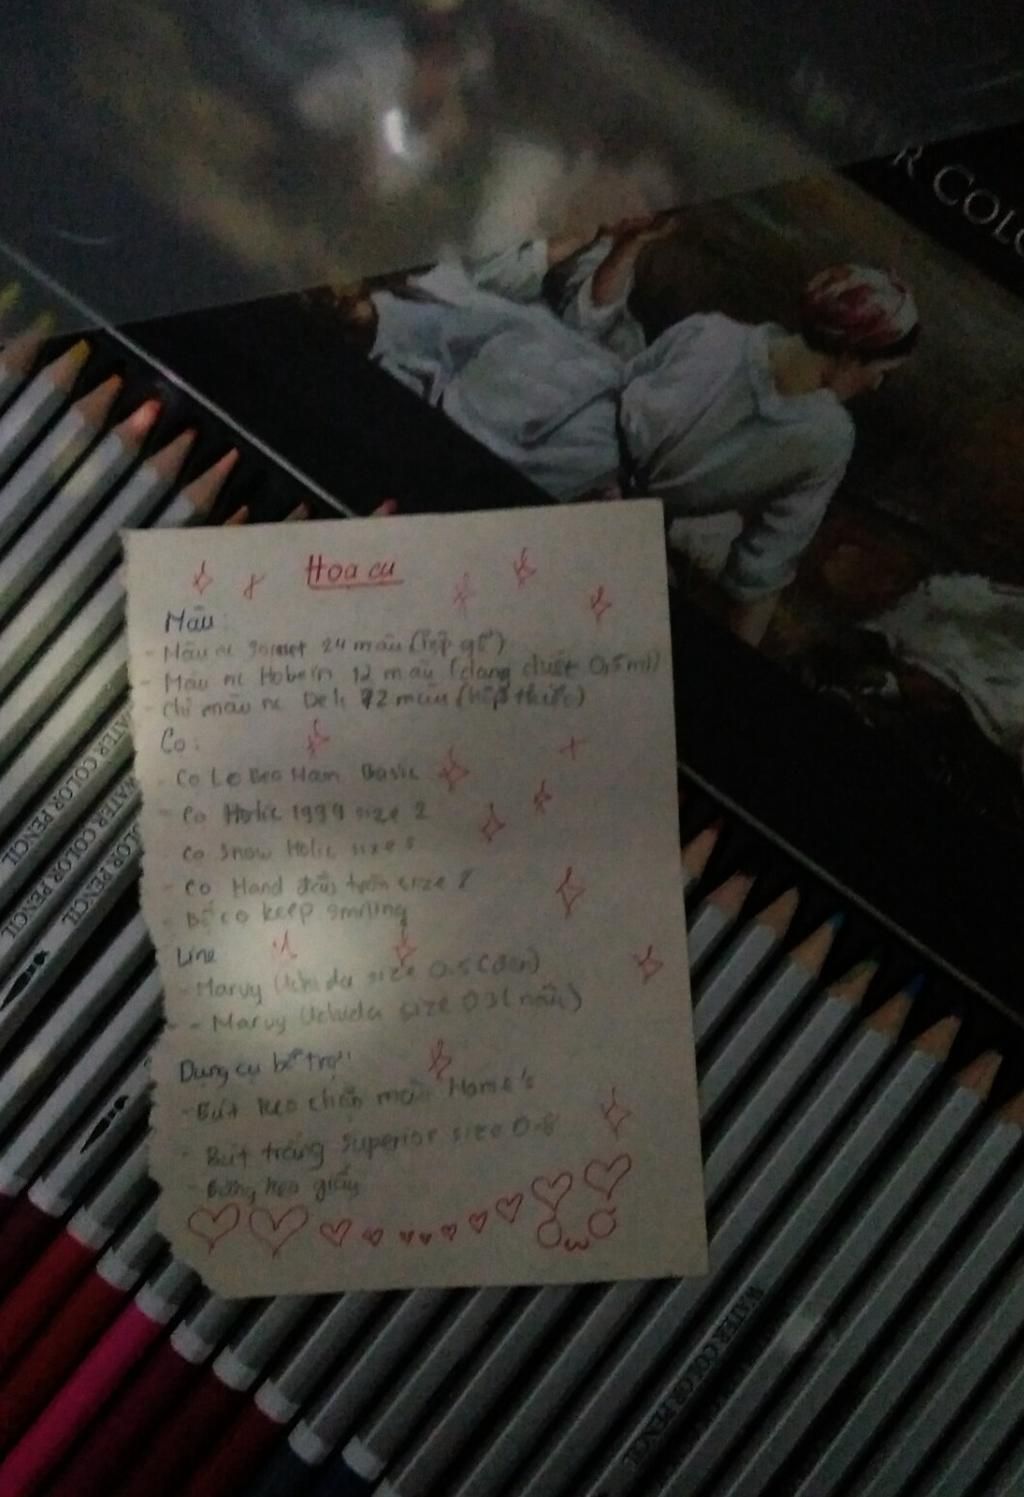 R COLO
Họa cụ
Màu:
- Màu nc 24 màu (hộp gỗ)
- Màu nc Hobein 12 màu (dạng chiết 0,5ml)
- Chì màu nc Deli 72 màu (hộp thiếc)
Cọ:
- Cọ Le Beo Ham Basic
- Cọ Holic 1999 size 2
Cọ Snow Holic size
- Cọ Hand đầu tròn size
- Bộ cọ keep smiling
Line
- Marvy Uchida size 0.5 (đen)
- Marvy Uchida size 03 (nâu)
Dụng cụ bổ trợ:
- Bút keo chắn màu
- Bút trắng Superior size 0.8
- Băng keo giấy
WATER COLOR PENCIL
WATER COLOR PENCIL
WATER COLOR PENCIL
WATER COLOR PENCIL